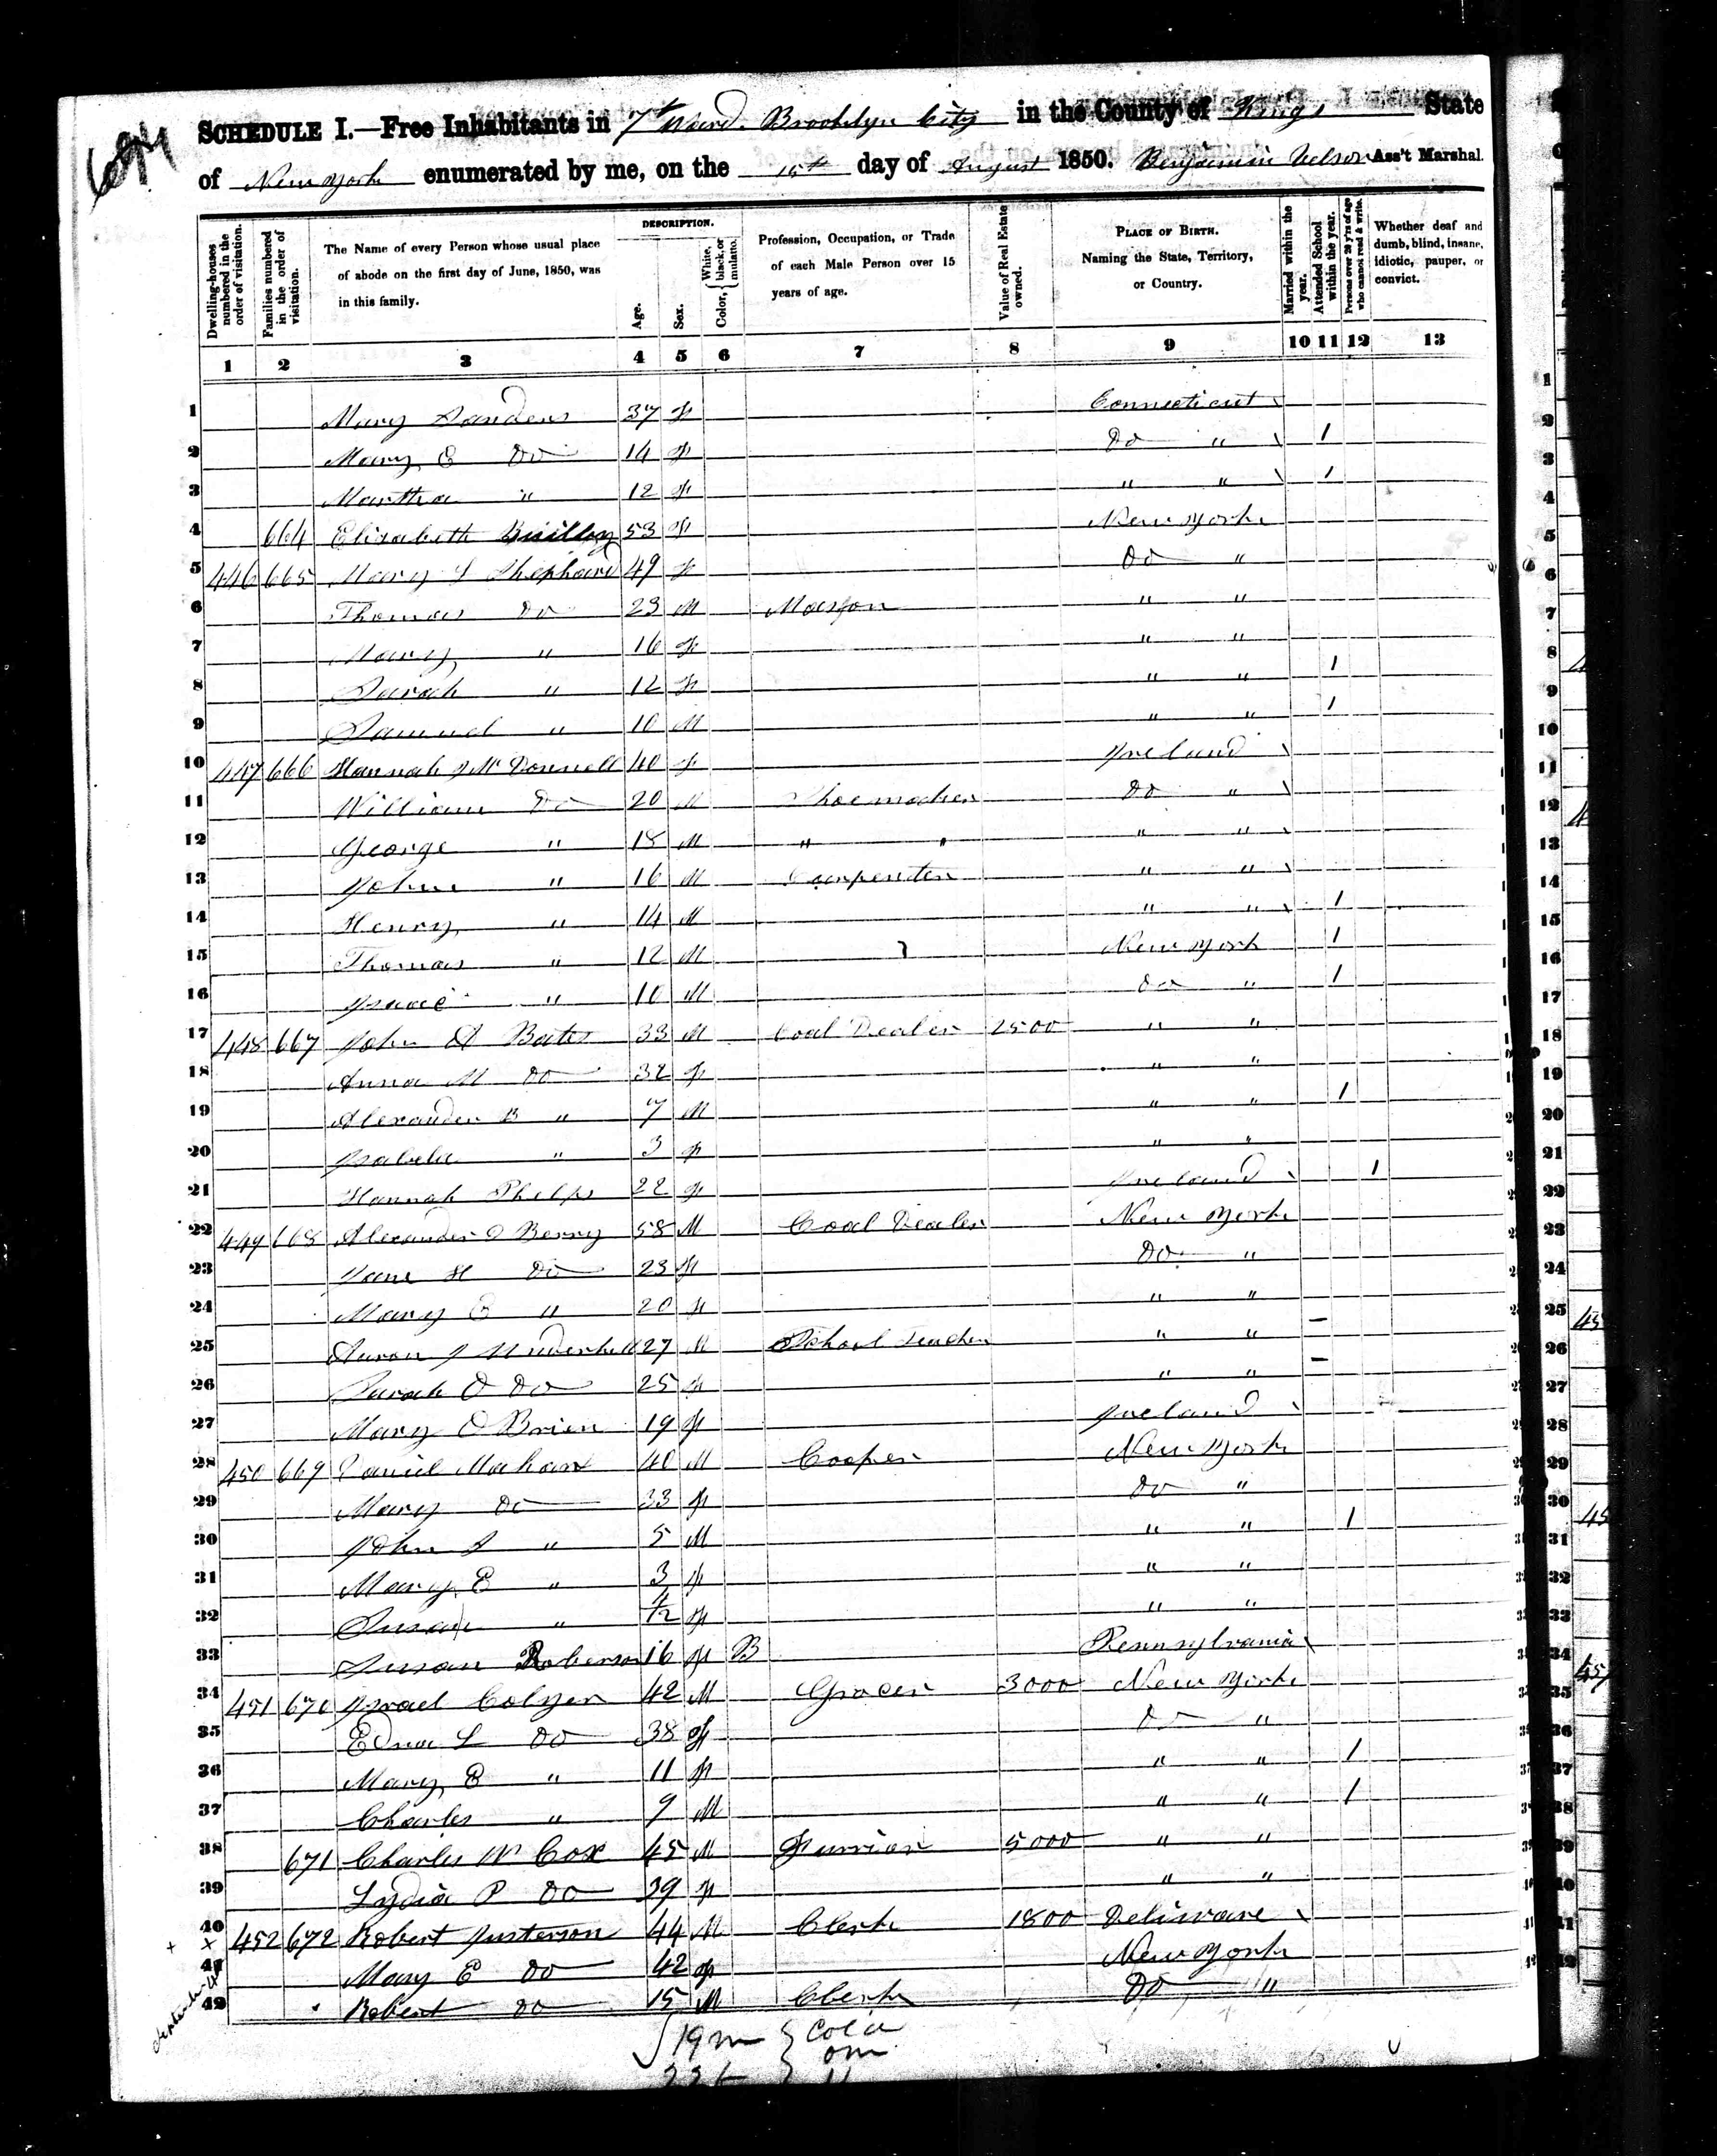 SCHEDULE I.—Free Inhabitants in 7th Ward. Brooklyn City in the County of Kings State
of New York enumerated by me, on the 15th day of August 1850. Benjamin Nelson Ass't Marshal.
Dwelling-houses numbered in the order of visitation.
Families numbered in the order of visitation.
The Name of every Person whose usual place of abode on the first day of June, 1850, was in this family.
DESCRIPTION.
Age.
Sex.
Color, { White, black, or mulatto.
Profession, Occupation, or Trade of each Male Person over 15 years of age.
Value of Real Estate owned.
PLACE OF BIRTH. Naming the State, Territory, or Country.
Married within the year.
Attended School within the year.
Persons over 20 y'rs of age who cannot read & write.
Whether deaf and dumb, blind, insane, idiotic, pauper, or convict.
1 2 3 4 5 6 7 8 9 10 11 12 13
1 Mary Sanders 37 F Connecticut
2 Mary E Do 14 F Do " 1
3 Martha " 12 F " " 1
4 664 Elizabeth 53 F New York
5 446 665 Mary L Shephard 49 F Do "
6 Thomas Do 23 M Mason " "
7 Mary " 16 F " "
8 Sarah " 12 F " " 1
9 Samuel " 10 M " " 1
10 447 666 Hannah J McDonnell 40 F Ireland
11 William Do 20 M Shoemaker Do "
12 George " 18 M " " " "
13 John " 16 M Carpenter " "
14 Henry " 14 M " " 1
15 Thomas " 12 M New York 1
16 Isaac " 10 M Do " 1
17 448 667 John A Bates 33 M Coal Dealer 2500 " "
18 Anna M Do 32 F " "
19 Alexander B " 7 M " " 1
20 Isabella " 3 F " "
21 Hannah Phelps 22 F Ireland 1
22 449 668 Alexander D Berry 58 M Coal Dealer New York
23 Jane H Do 23 F Do "
24 Mary E " 20 F " "
25 Aaron J Underhill 27 M School Teacher " " –
26 Sarah D Do 25 F " " –
27 Mary O Brien 19 F Ireland
28 450 669 Daniel Mahan 40 M Cooper New York
29 Mary Do 33 F Do "
30 John S " 5 M " " 1
31 Mary E " 3 F " "
32 Susan " 4/12 F " "
33 Susan Roberson 16 F B Pennsylvania
34 451 670 Israel Colyer 42 M Grocer 3000 New York
35 Edna L Do 38 F Do "
36 Mary E " 11 F " " 1
37 Charles " 9 M " " 1
38 671 Charles W Cox 45 M Furrier 5000 " "
39 Lydia P Do 39 F " "
40 452 672 Robert Justerson 44 M Clerk 1800 Deliware
41 Mary E Do 42 F New York
42 Robert Do 15 M Clerk Do "
19 m } Col'd